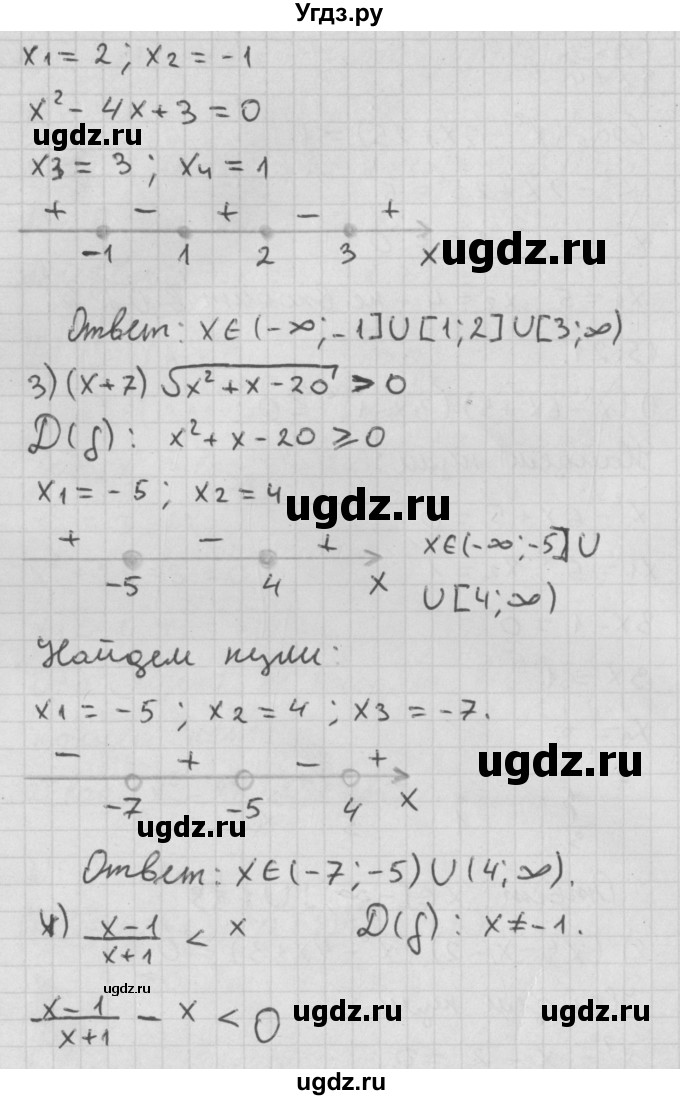 Угдз.ру
x1 = 2 ; x2 = -1
x² - 4x + 3 = 0
ugdz.ru
x3 = 3 ; x4 = 1
+ - + - +
-1 1 2 3 x
ugdz.ru
Ответ: x ∈ (-∞; -1] ∪ [1; 2] ∪ [3; ∞)
3) (x+7) √x² + x - 20 > 0
D(f) : x² + x - 20 ⩾ 0
x1 = -5 ; x2 = 4
ugdz.ru
+ - + x ∈ (-∞; -5] ∪
-5 4 x ∪ [4; ∞)
Найдем нули:
x1 = -5 ; x2 = 4 ; x3 = -7.
ugdz.ru
- + - +
-7 -5 4 x
ugdz.ru
Ответ: x ∈ (-7; -5) ∪ (4; ∞).
4) x-1/x+1 < x D(f) : x ≠ -1.
ugdz.ru
x-1/x+1 - x < 0
ugdz.ru ugdz.ru
ugdz.ru